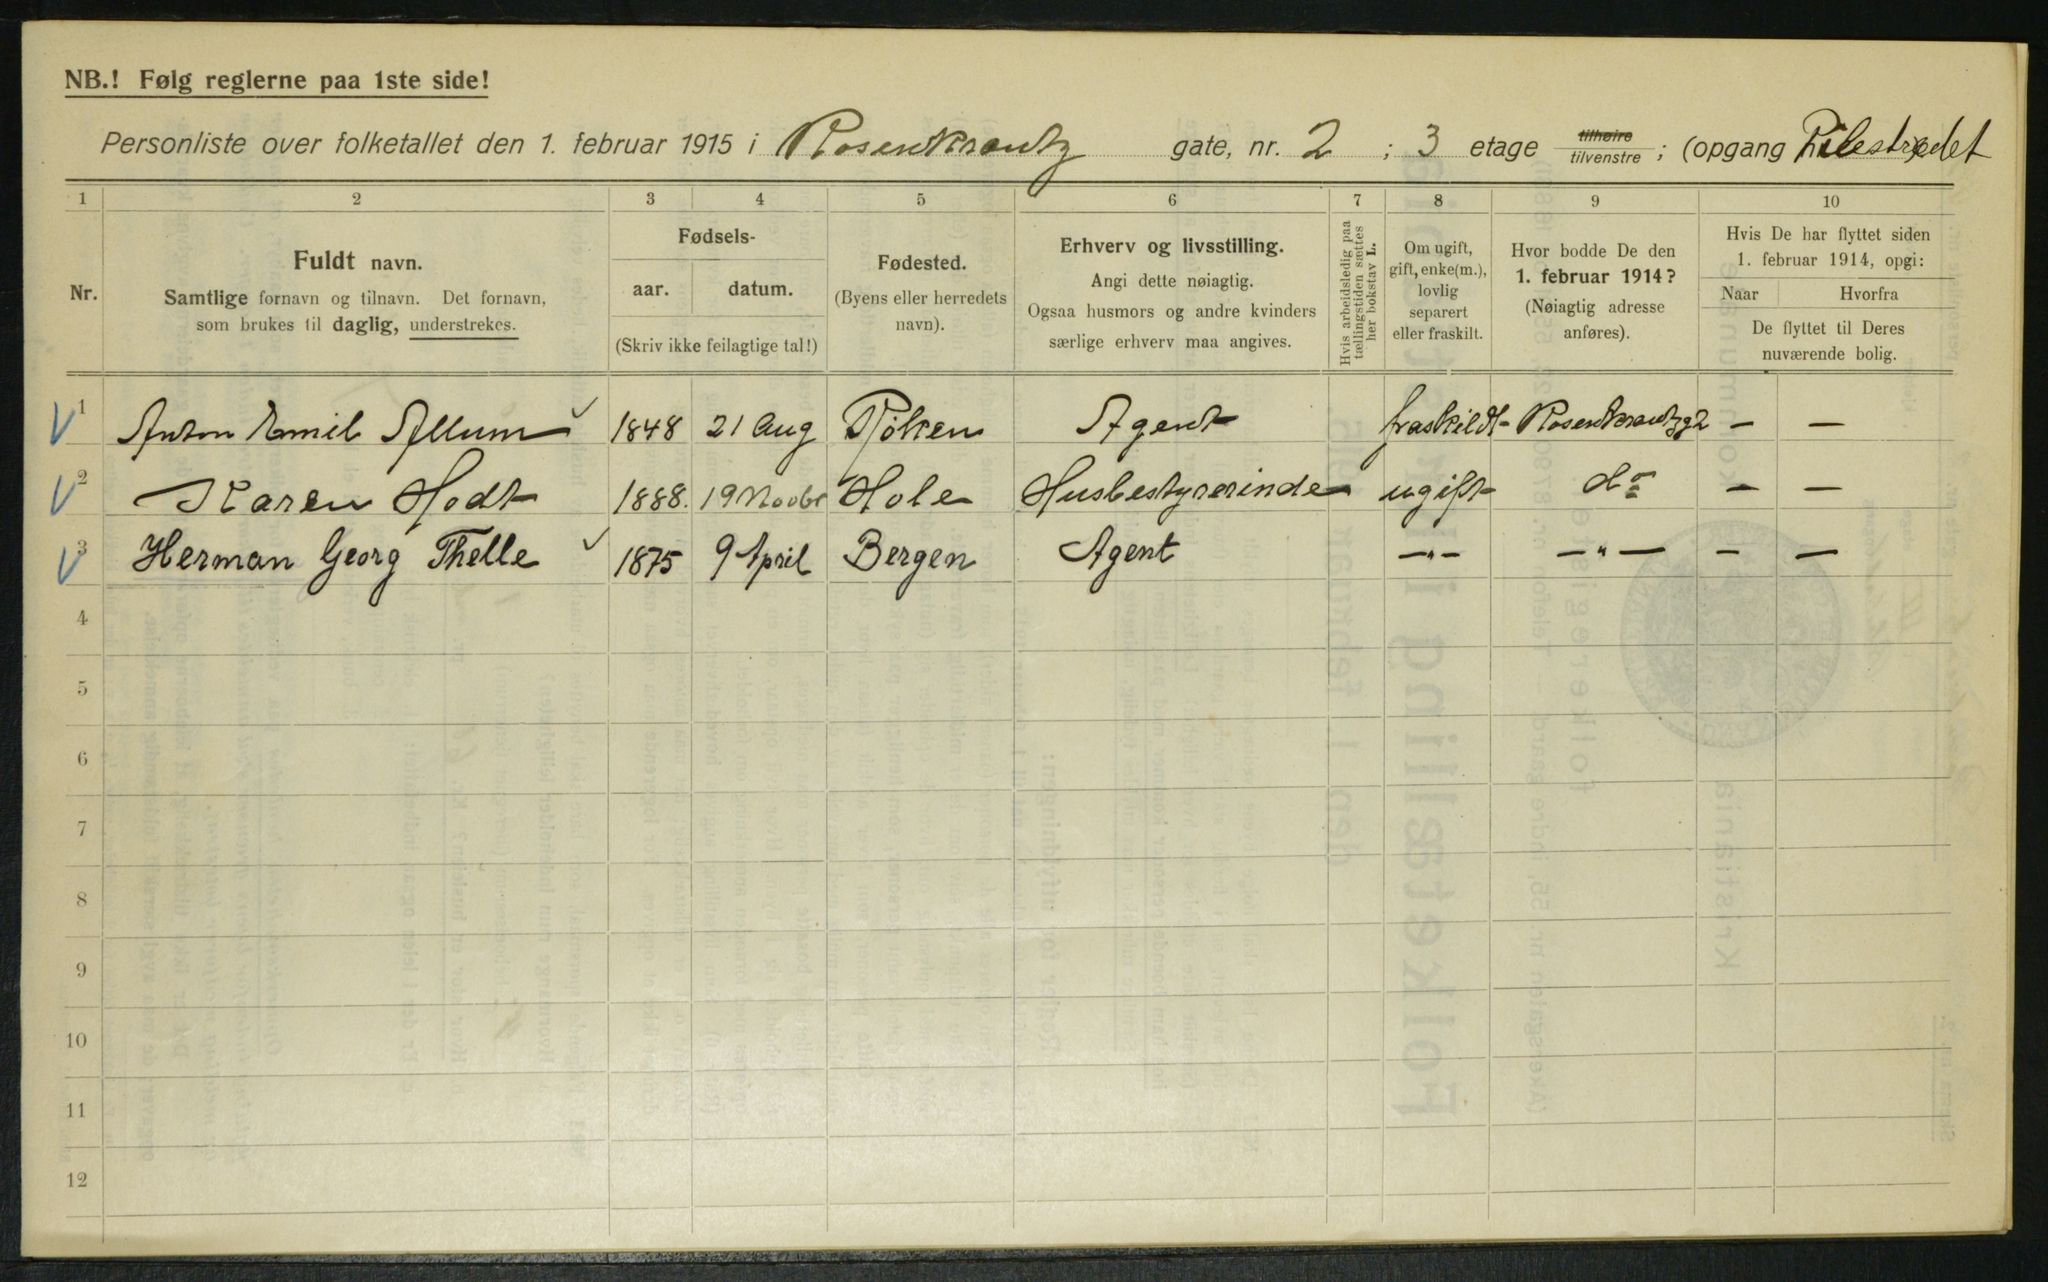 NB.! Følg reglerne paa 1ste side!
Personliste over folketallet den 1. februar 1915 i Rosenkrantz gate, nr. 2 ; 3 etage tilhøire tilvenstre ; (opgang Pilestrædet
1 2 3 4 5 6 7 8 9 10
Nr.
Fuldt navn.
Samtlige fornavn og tilnavn. Det fornavn,
som brukes til daglig, understrekes.
Fødsels-
aar. datum.
(Skriv ikke feilagtige tal!)
Fødested.
(Byens eller herredets
navn).
Erhverv og livsstilling.
Angi dette nøiagtig.
Ogsaa husmors og andre kvinders
særlige erhverv maa angives.
Hvis arbeidsledig paa
tællingstiden sættes
her bokstav L.
Om ugift,
gift, enke(m.),
lovlig
separert
eller fraskilt.
Hvor bodde De den
1. februar 1914?
(Nøiagtig adresse
anføres).
Hvis De har flyttet siden
1. februar 1914, opgi:
Naar Hvorfra
De flyttet til Deres
nuværende bolig.
1 Anton Emil Allum 1848 21 Aug Agent fraskildt Rosenkrantzg 2 – –
2 Karen Hodt 1888. 19 Novbr Hole Husbestyrerinde ugift do – –
3 Herman Georg Thelle 1875 9 April Bergen Agent —"— —"— – –
4
5
6
7
8
9
10
11
12